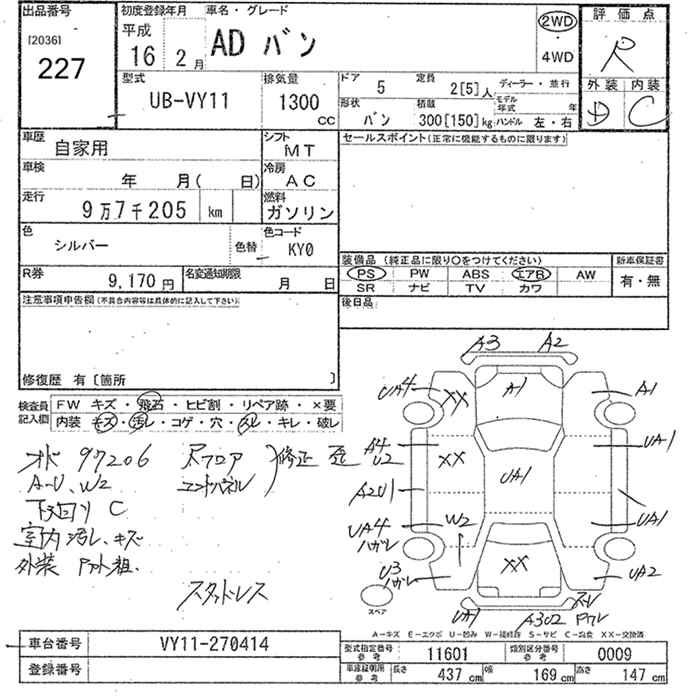 出品番号
[2036]
227
初度登録年月
平成
16 2月
車名・グレード
AD バン
2WD
4WD
評価点
R
外装 内装
D C
型式
UB-VY11
排気量
1300
cc
ドア
5
定員
2[5]人
ディーラー・並行
形状
バン
積載
300[150]kg
モデル年式 年
ハンドル 左・右
車歴
自家用
シフト
MT
セールスポイント(正常に機能するものに限ります)
車検
年 月( 日)
冷房
AC
走行
9万7千205 km
燃料
ガソリン
色
シルバー
色替
色コード
KY0
装備品 (純正品に限り○をつけてください)
新車保証書
PS PW ABS エアB AW
SR ナビ TV カワ
有・無
R券
9,170円
名変通知期限
月 日
後日品
注意事項申告欄(不具合内容等は具体的に記入して下さい)
修復歴 有〔箇所 〕
検査員記入欄
FW キズ・飛石・ヒビ割・リペア跡・×要
内装 キズ・汚レ・コゲ・穴・スレ・キレ・破レ
97206
A-U、W2
下回り C
室内 汚レ、キズ
外装
リアフロア
エンドパネル
修正
スタッドレス
A3 A2
UA4 XX A1 A1
A4 U2 XX UA1 UA1
A2U1
UA4 ハガレ W2 UA1
U3 ハガレ XX UA2
UA1 A3U2
スペア
A-キズ E-エクボ U-凹み W-補修跡 S-サビ C-腐食 XX-交換済
車台番号
VY11-270414
登録番号
型式指定番号 参考
11601
類別区分番号 参考
0009
車庫証明用 参考
長さ 437 cm
幅 169 cm
高さ 147 cm